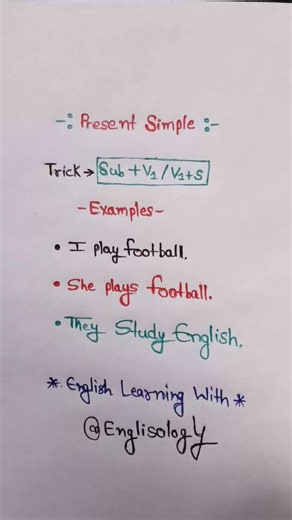 -: Present Simple :-
Trick → Sub + V1 / V1+S
- Examples -
• I play football.
• She plays football.
• They Study English.
* English Learning With *
@Englisology